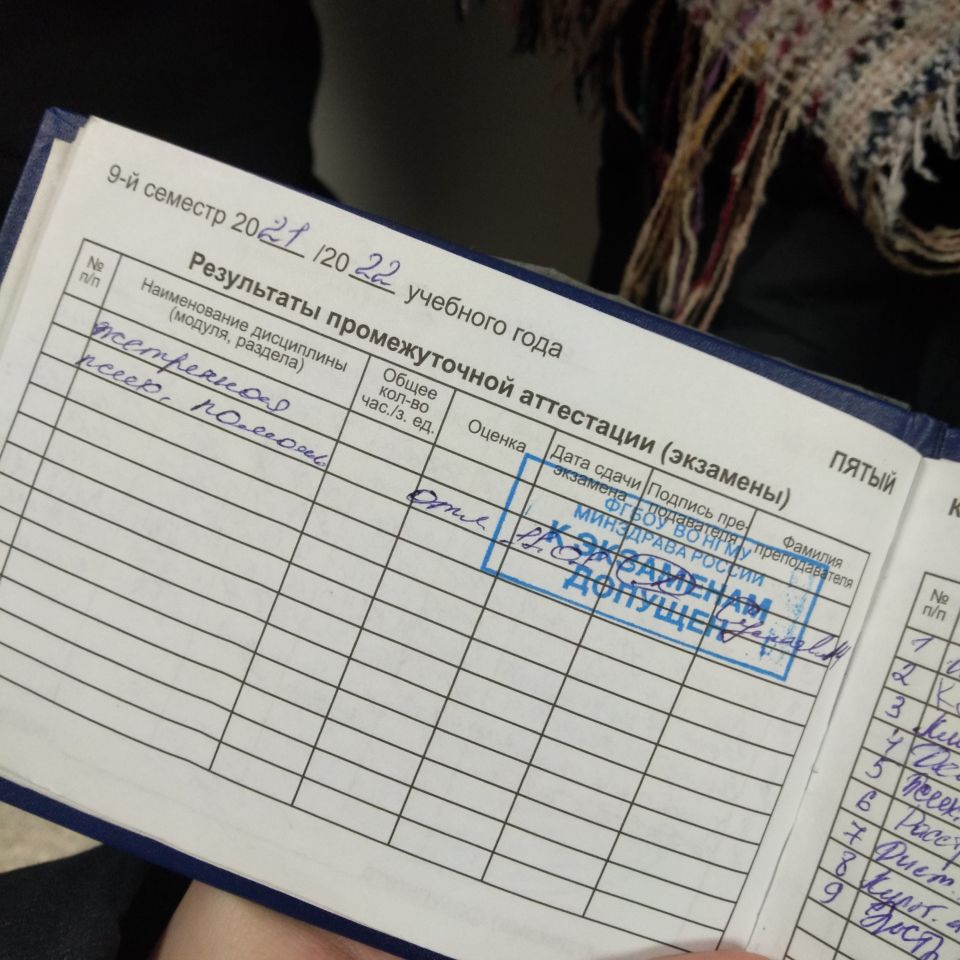 9-й семестр 2021/2022 учебного года
ПЯТЫЙ
Результаты промежуточной аттестации (экзамены)
№ п/п
Наименование дисциплины
(модуля, раздела)
Общее
кол-во
час./з. ед.
Оценка
Дата сдачи
экзамена
Подпись пре-
подавателя
Фамилия
преподавателя
экстренная
псих. помощь
отл.
ФГБОУ ВО НГМУ
МИНЗДРАВА РОССИИ
К ЭКЗАМЕНАМ
ДОПУЩЕН
К
№
п/п
1
2
3
4
5
6
7
8
9